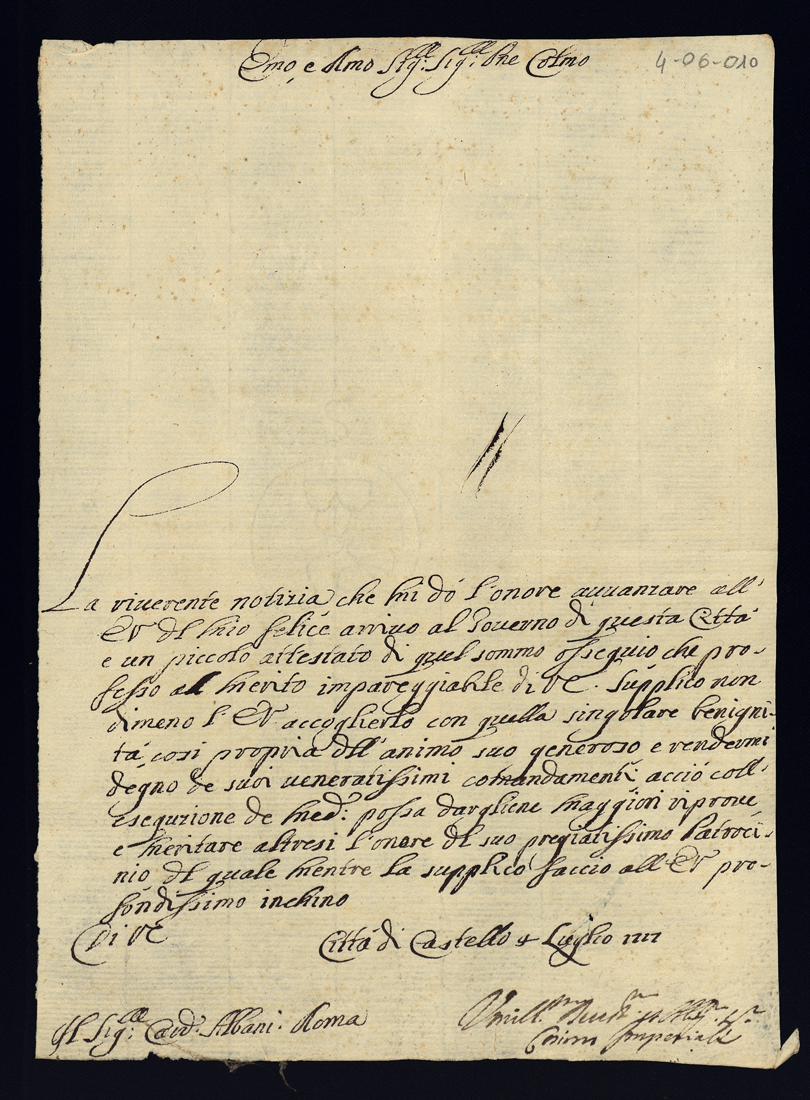 Emo, e Rmo Sig:re Sig:re Pne Colmo
4-06-010
La riverente notizia che mi dó l'onore avvanzare all'
EV dl mio felice arrivo al Governo di questa Città
e un piccolo attestato di quel sommo ossequio che pro-
fesso al merito impareggiabile di VE. Supplico non
dimeno l'EV accoglierlo con quella singolare benigni-
tà, così propria dll'animo suo generoso e rendermi
degno de suoi veneratissimi comandamenti acciò coll'
esequzione de med: possa dargliene maggiori riprove,
e meritare altresì l'onore dl suo pregiatissimo Patroci-
nio dl quale mentre la supplico faccio all'EV pro-
fondissimo inchino
Di VE
Città di Castello 4 Luglio 1717
Sig:re Card: Albani. Roma
Imperiali